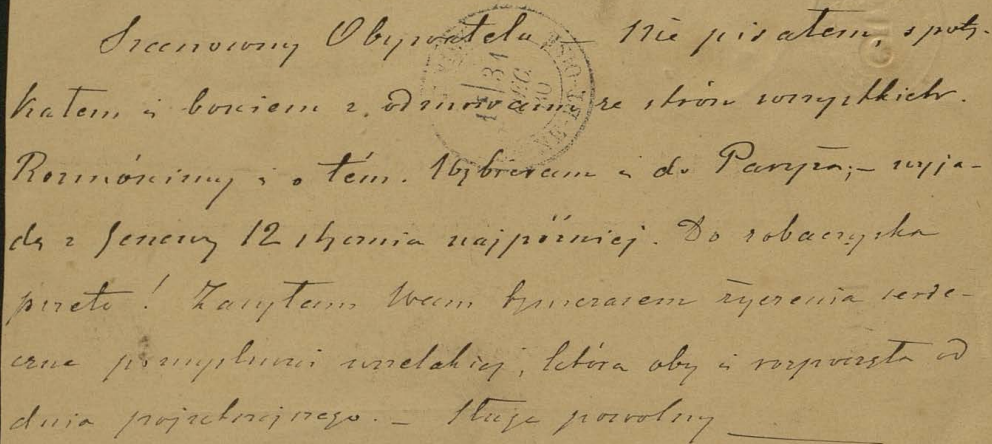 Szanowny Obywatelu — Nie pisałem, spoty-
kałem się bowiem z odmowami ze stron wszystkich.
Rozmówimy się o tém. Wybieram się do Paryża; – wyja-
dę z Genewy 12 stycznia najpóźniej. Do zobaczyska
przeto! Zasyłam Wam tymczasem życzenia serde-
czne pomyślności wszelakiej, która oby się rozpoczęła od
dnia pojutrzejszego. – Sługa powolny
31
DEC
80